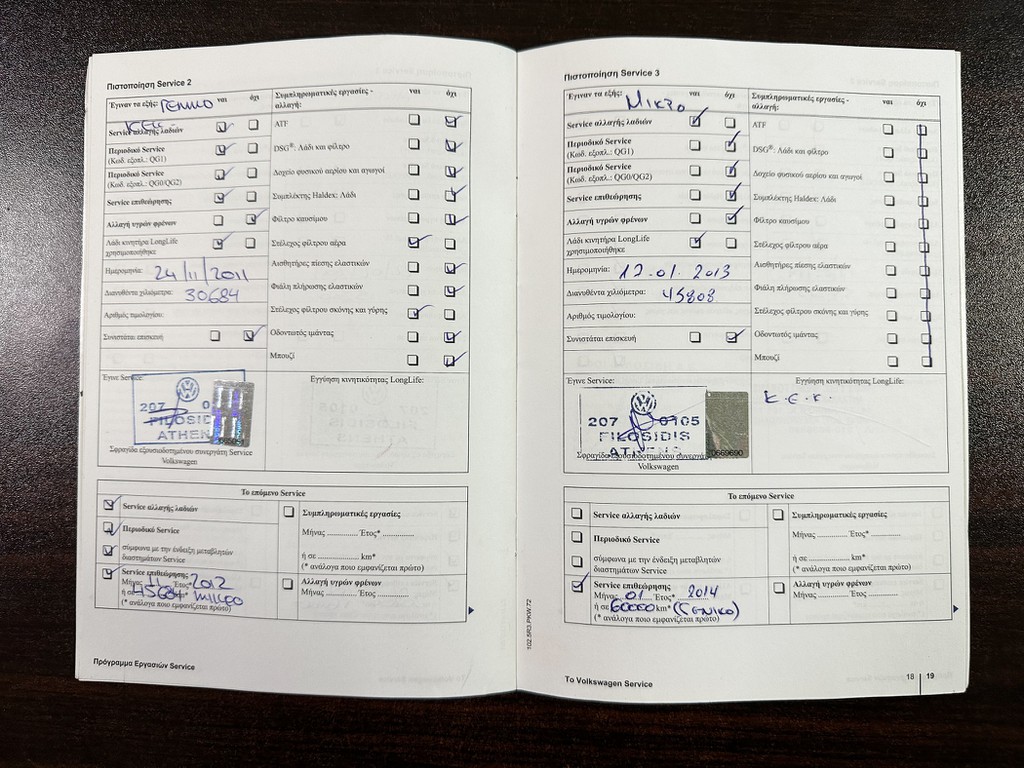 Πιστοποίηση Service 2
Έγιναν τα εξής: ΓΕΝΙΚΟ ναι όχι
Service αλλαγής λαδιών
Περιοδικό Service
(Κωδ. εξοπλ.: QG1)
Περιοδικό Service
(Κωδ. εξοπλ.: QG0/QG2)
Service επιθεώρησης
Αλλαγή υγρών φρένων
Λάδι κινητήρα LongLife
χρησιμοποιήθηκε
Ημερομηνία: 24/11/2011
Διανυθέντα χιλιόμετρα: 30684
Αριθμός τιμολογίου:
Συνιστάται επισκευή
Συμπληρωματικές εργασίες - ναι όχι
αλλαγή:
ATF
DSG®: Λάδι και φίλτρο
Δοχείο φυσικού αερίου και αγωγοί
Συμπλέκτης Haldex: Λάδι
Φίλτρο καυσίμου
Στέλεχος φίλτρου αέρα
Αισθητήρες πίεσης ελαστικών
Φιάλη πλήρωσης ελαστικών
Στέλεχος φίλτρου σκόνης και γύρης
Οδοντωτός ιμάντας
Μπουζί
Έγινε Service:
207 0
FILOSID
ATHEN
Σφραγίδα εξουσιοδοτημένου συνεργάτη Service
Volkswagen
Εγγύηση κινητικότητας LongLife:
Το επόμενο Service
Service αλλαγής λαδιών
Περιοδικό Service
σύμφωνα με την ένδειξη μεταβλητών
διαστημάτων Service
Service επιθεώρησης
Μήνας 11 Έτος* 2012
ή σε 45684 ΜΙΚΡΟ
(* ανάλογα ποιο εμφανίζεται πρώτο)
Συμπληρωματικές εργασίες
Μήνας ............. Έτος* .............
ή σε .................. km*
(* ανάλογα ποιο εμφανίζεται πρώτο)
Αλλαγή υγρών φρένων
Μήνας ............. Έτος .............
Πρόγραμμα Εργασιών Service
Πιστοποίηση Service 3
Έγιναν τα εξής: ΜΙΚΡΟ ναι όχι
Service αλλαγής λαδιών
Περιοδικό Service
(Κωδ. εξοπλ.: QG1)
Περιοδικό Service
(Κωδ. εξοπλ.: QG0/QG2)
Service επιθεώρησης
Αλλαγή υγρών φρένων
Λάδι κινητήρα LongLife
χρησιμοποιήθηκε
Ημερομηνία: 12.01.2013
Διανυθέντα χιλιόμετρα: 45808
Αριθμός τιμολογίου:
Συνιστάται επισκευή
Συμπληρωματικές εργασίες - ναι όχι
αλλαγή:
ATF
DSG®: Λάδι και φίλτρο
Δοχείο φυσικού αερίου και αγωγοί
Συμπλέκτης Haldex: Λάδι
Φίλτρο καυσίμου
Στέλεχος φίλτρου αέρα
Αισθητήρες πίεσης ελαστικών
Φιάλη πλήρωσης ελαστικών
Στέλεχος φίλτρου σκόνης και γύρης
Οδοντωτός ιμάντας
Μπουζί
Έγινε Service:
207 0105
FILOSIDIS
ATHENS
Σφραγίδα εξουσιοδοτημένου συνεργάτη Service
Volkswagen
Εγγύηση κινητικότητας LongLife:
Κ.Ε.Κ.
Το επόμενο Service
Service αλλαγής λαδιών
Περιοδικό Service
σύμφωνα με την ένδειξη μεταβλητών
διαστημάτων Service
Service επιθεώρησης
Μήνας 01 Έτος* 2014
ή σε 60000 km* (ΓΕΝΙΚΟ)
(* ανάλογα ποιο εμφανίζεται πρώτο)
Συμπληρωματικές εργασίες
Μήνας ............. Έτος* .............
ή σε .................. km*
(* ανάλογα ποιο εμφανίζεται πρώτο)
Αλλαγή υγρών φρένων
Μήνας ............. Έτος .............
102.5R3.PKW.72
Το Volkswagen Service
18 19